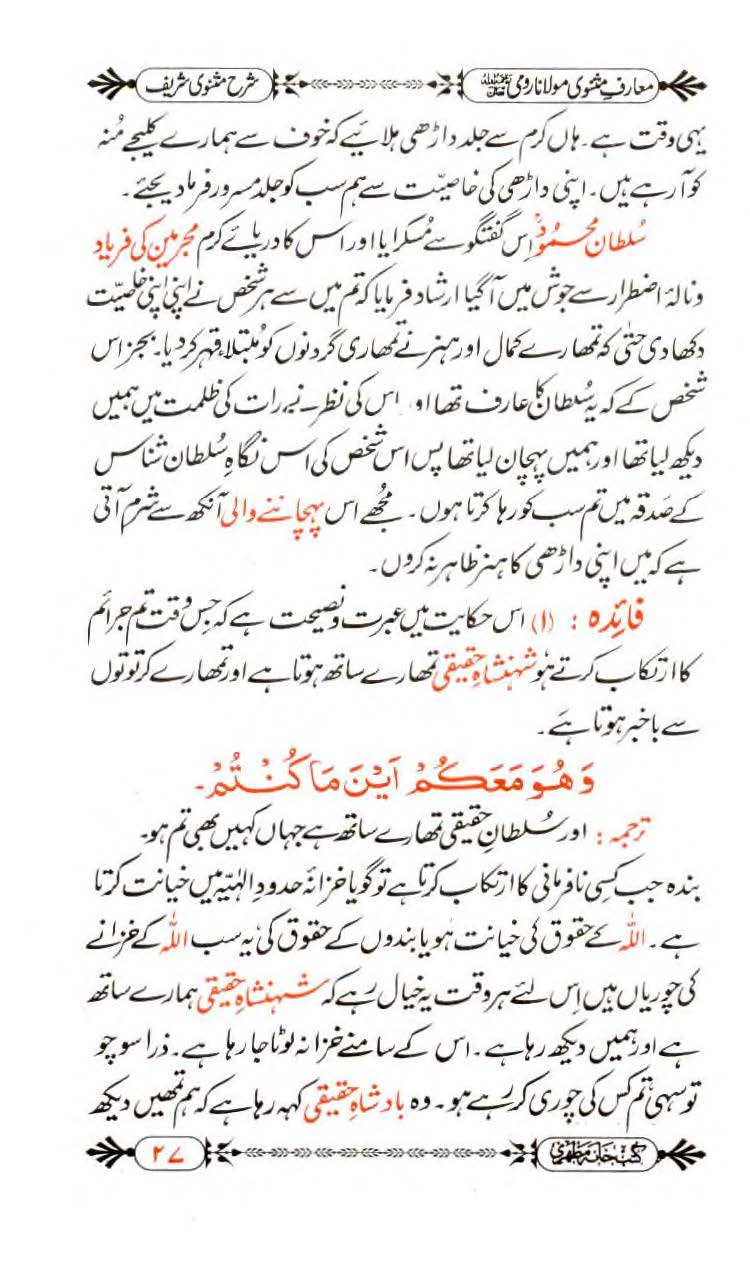 معارفِ مثنوی مولانا رومی شرح مثنوی شریف
یہی وقت ہے۔ ہاں کرم سے جلد داڑھی ہلائیے کہ خوف سے ہمارے کلیجے مُنہ
کو آرہے ہیں۔ اپنی داڑھی کی خاصیّت سے ہم سب کو جلد مسرور فرما دیجئے۔
سُلطان محمُود اس گفتگو سے مُسکرایا اور اس کا دریائے کرم مجرمین کی فریاد
و نالۂ اضطرار سے جوش میں آگیا ارشاد فرمایا کہ تم میں سے ہر شخص نے اپنی اپنی خاصیّت
دکھا دی حتٰی کہ تمھارے کمال اور ہنر نے تمھاری گردنوں کو مُبتلاءِ قہر کردیا۔ بجز اس
شخص کے کہ یہ سُلطان کا عارف تھا اور اس کی نظر نے رات کی ظلمت میں ہمیں
دیکھ لیا تھا اور ہمیں پہچان لیا تھا پس اس شخص کی اس نگاہِ سُلطان شناس
کے صَدقہ میں تم سب کو رہا کرتا ہوں۔ مجُھے اس پہچاننے والی آنکھ سے شرم آتی
ہے کہ میں اپنی داڑھی کا ہنر ظاہر نہ کروں۔
فائِدہ : (۱) اس حکایت میں عبرت و نصیحت ہے کہ جس وقت تم جرائم
کا ارتکاب کرتے ہو شہنشاہِ حقیقی تمھارے ساتھ ہوتا ہے اور تمھارے کرتوتوں
سے باخبر ہوتا ہے۔
وَهُوَ مَعَكُمْ اَيْنَ مَا كُنْتُمْ۔
ترجمہ : اور سُلطانِ حقیقی تمھارے ساتھ ہے جہاں کہیں بھی تم ہو۔
بندہ جب کسی نافرمانی کا ارتکاب کرتا ہے تو گویا خزانۂ حدودِ الٰہیّہ میں خیانت کرتا
ہے۔ اللہ کے حقوق کی خیانت ہو یا بندوں کے حقوق کی یہ سب اللہ کے خزانے
کی چوریاں ہیں اِس لئے ہر وقت یہ خیال رہے کہ شہنشاہِ حقیقی ہمارے ساتھ
ہے اور ہمیں دیکھ رہا ہے۔ اس کے سامنے خزانہ لوٹا جا رہا ہے۔ ذرا سوچو
تو سہی تم کس کی چوری کر رہے ہو۔ وہ بادشاہِ حقیقی کہہ رہا ہے کہ ہم تمھیں دیکھ
کتب خانہ مظہری ۲۷